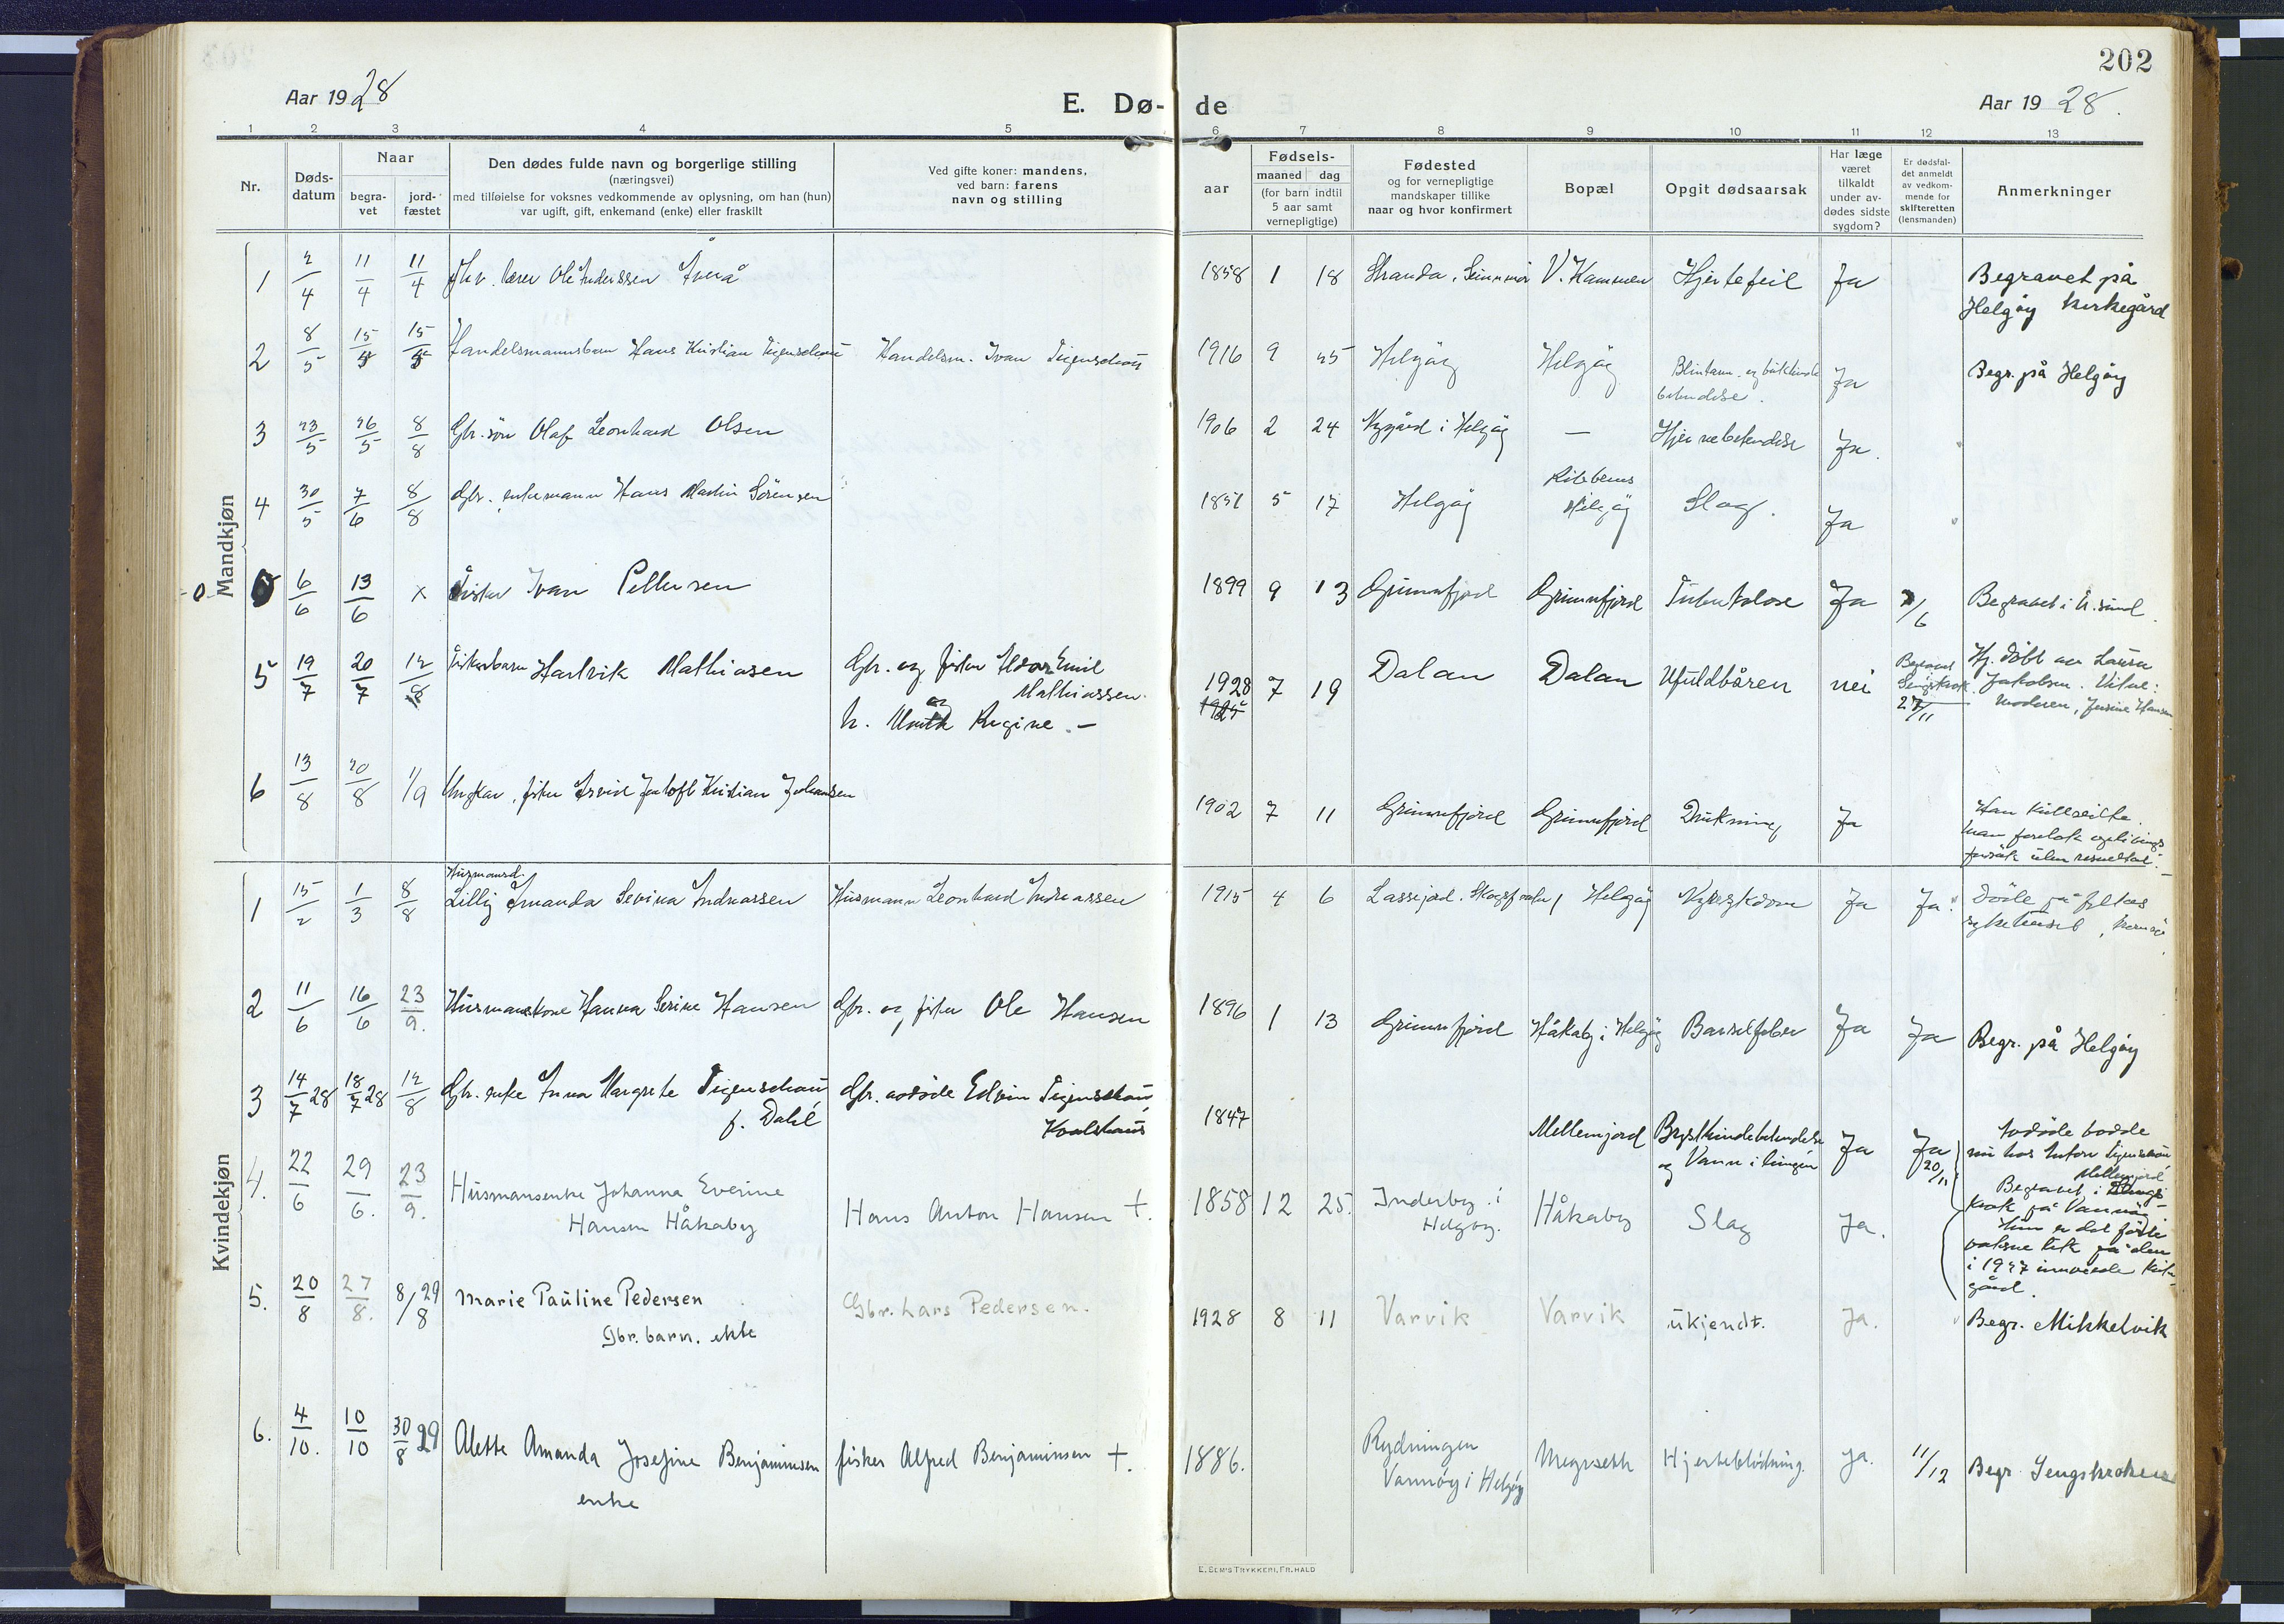 202
Aar 1928
E. Dø-
de
Aar 1928.
1 2 3 4 5 6 7 8 9 10 11 12 13
Nr.
Døds-
datum
Naar
begra-
vet
jord-
fæstet
Den dødes fulde navn og borgerlige stilling
(næringsvei)
med tilføielse for voksnes vedkommende av oplysning, om han (hun)
var ugift, gift, enkemand (enke) eller fraskilt
Ved gifte koner: mandens,
ved barn: farens
navn og stilling
aar
Fødsels-
maaned dag
(for barn indtil
5 aar samt
vernepligtige)
Fødested
og for vernepligtige
mandskaper tillike
naar og hvor konfirmert
Bopæl
Opgit dødsaarsak
Har læge
været
tilkaldt
under av-
dødes sidste
sygdom?
Er dødsfal-
det anmeldt
av vedkom-
mende for
skifteretten
(lensmanden)
Anmerkninger
Mandkjøn
1 2/4 11/4 11/4 lærer Ole Anderssen 1858 1 18 Stranda, V. Kammen Hjertefeil Ja Begravet på
Helgøy kirkegård
2 8/5 15/5 Handelsmannsbarn Hans Kristian Figenschou Handelsm. Ivar Figenschou 1916 9 25 Helgøy Helgøy Blintarm- og
betendelse. Ja Begr. på Helgøy
3 23/5 26/5 8/8 Gbr. søn Olaf Leonhard Olsen 1906 2 24 Nygård i Helgøy — Hjernebetendelse Ja.
4 30/5 7/6 8/8 Gbr. enkemann Hans Martin Sørensen 1851 5 17 Helgøy
Helgøy Slag. Ja
-0- 6/6 13/6 x Fisker Ivan Pettersen 1899 9 13 Grunnfjord Grunnfjord Tuberkulose Ja /6 Begravet i
5 19/7 20/7 12/8 Fiskerbarn Hartvik Mathiasen Gbr. og fisker Emil
Mathiassen
h. Regine. — 1928
1925 7 19 Dalan Dalan Ufuldbåren nei Begravet
27/11 Hj. døbt av Laura
Jakobsen. Vitne:
moderen, Hansen
6 13/8 20/8 1/9 Ungkar, fisker Arvid Kristian Johansen 1902 7 11 Grunnfjord Grunnfjord Drukning Ja Han kullseilte.
man foretok oplivings
forsøk uten resultat. —
Kvindekjøn
1 15/2 1/3 8/8 Husmannsd.
Lilly Amanda Sevina Andreassen Husmann Leonhard Andreassen 1915 4 6 Helgøy Ja Ja. Døde på
sykehuset,
2 11/6 16/6 23/9. Husmanskone Hanna Serine Hansen Gbr. og fisker Ole Hansen 1896 1 13 Grunnfjord Håkaby i Helgøy Barselfeber Ja Ja Begr. på Helgøy
3 14/7 28 18/7 28 12/8 Gbr. enke Anna Margrete Figenschou
f. Dahl Gbr. avdøde Edvin Figenschou
Kvalshaus 1847 Mellemjord Brysthindebetendelse
og Vann i lungen Ja Ja
20/11 Avdøde bodde
nu hos Anton Figenschou
Mellemjord
Begravet i
krok på Vannøy
Hun er det første
voksne lik på den
i 1927 innviede kirke-
gård.
4. 22/6 29/6. 23/9. Husmansenke Johanna Everine
Hansen Håkaby Hans Anton Hansen +. 1858 12 25. Inderby i
Helgøy. Håkaby Slag Ja.
5. 20/8 27/8. 8/8 29 Marie Pauline Pedersen
Gbr. barn. ekte Gbr. Lars Pedersen. 1928 8 11 Varvik Varvik ukjendt. Ja. Begr. Mikkelvik
6. 4/10. 10/10 30/8 29 Alette Amanda Josefine Benjaminsen
enke fisker Alfred Benjaminsen +. 1886. Rydningen
Vannøy i Helgøy Hjerteblødning. Ja. 11/12 Begr.
E. Sem's Trykkeri, Fr.hald